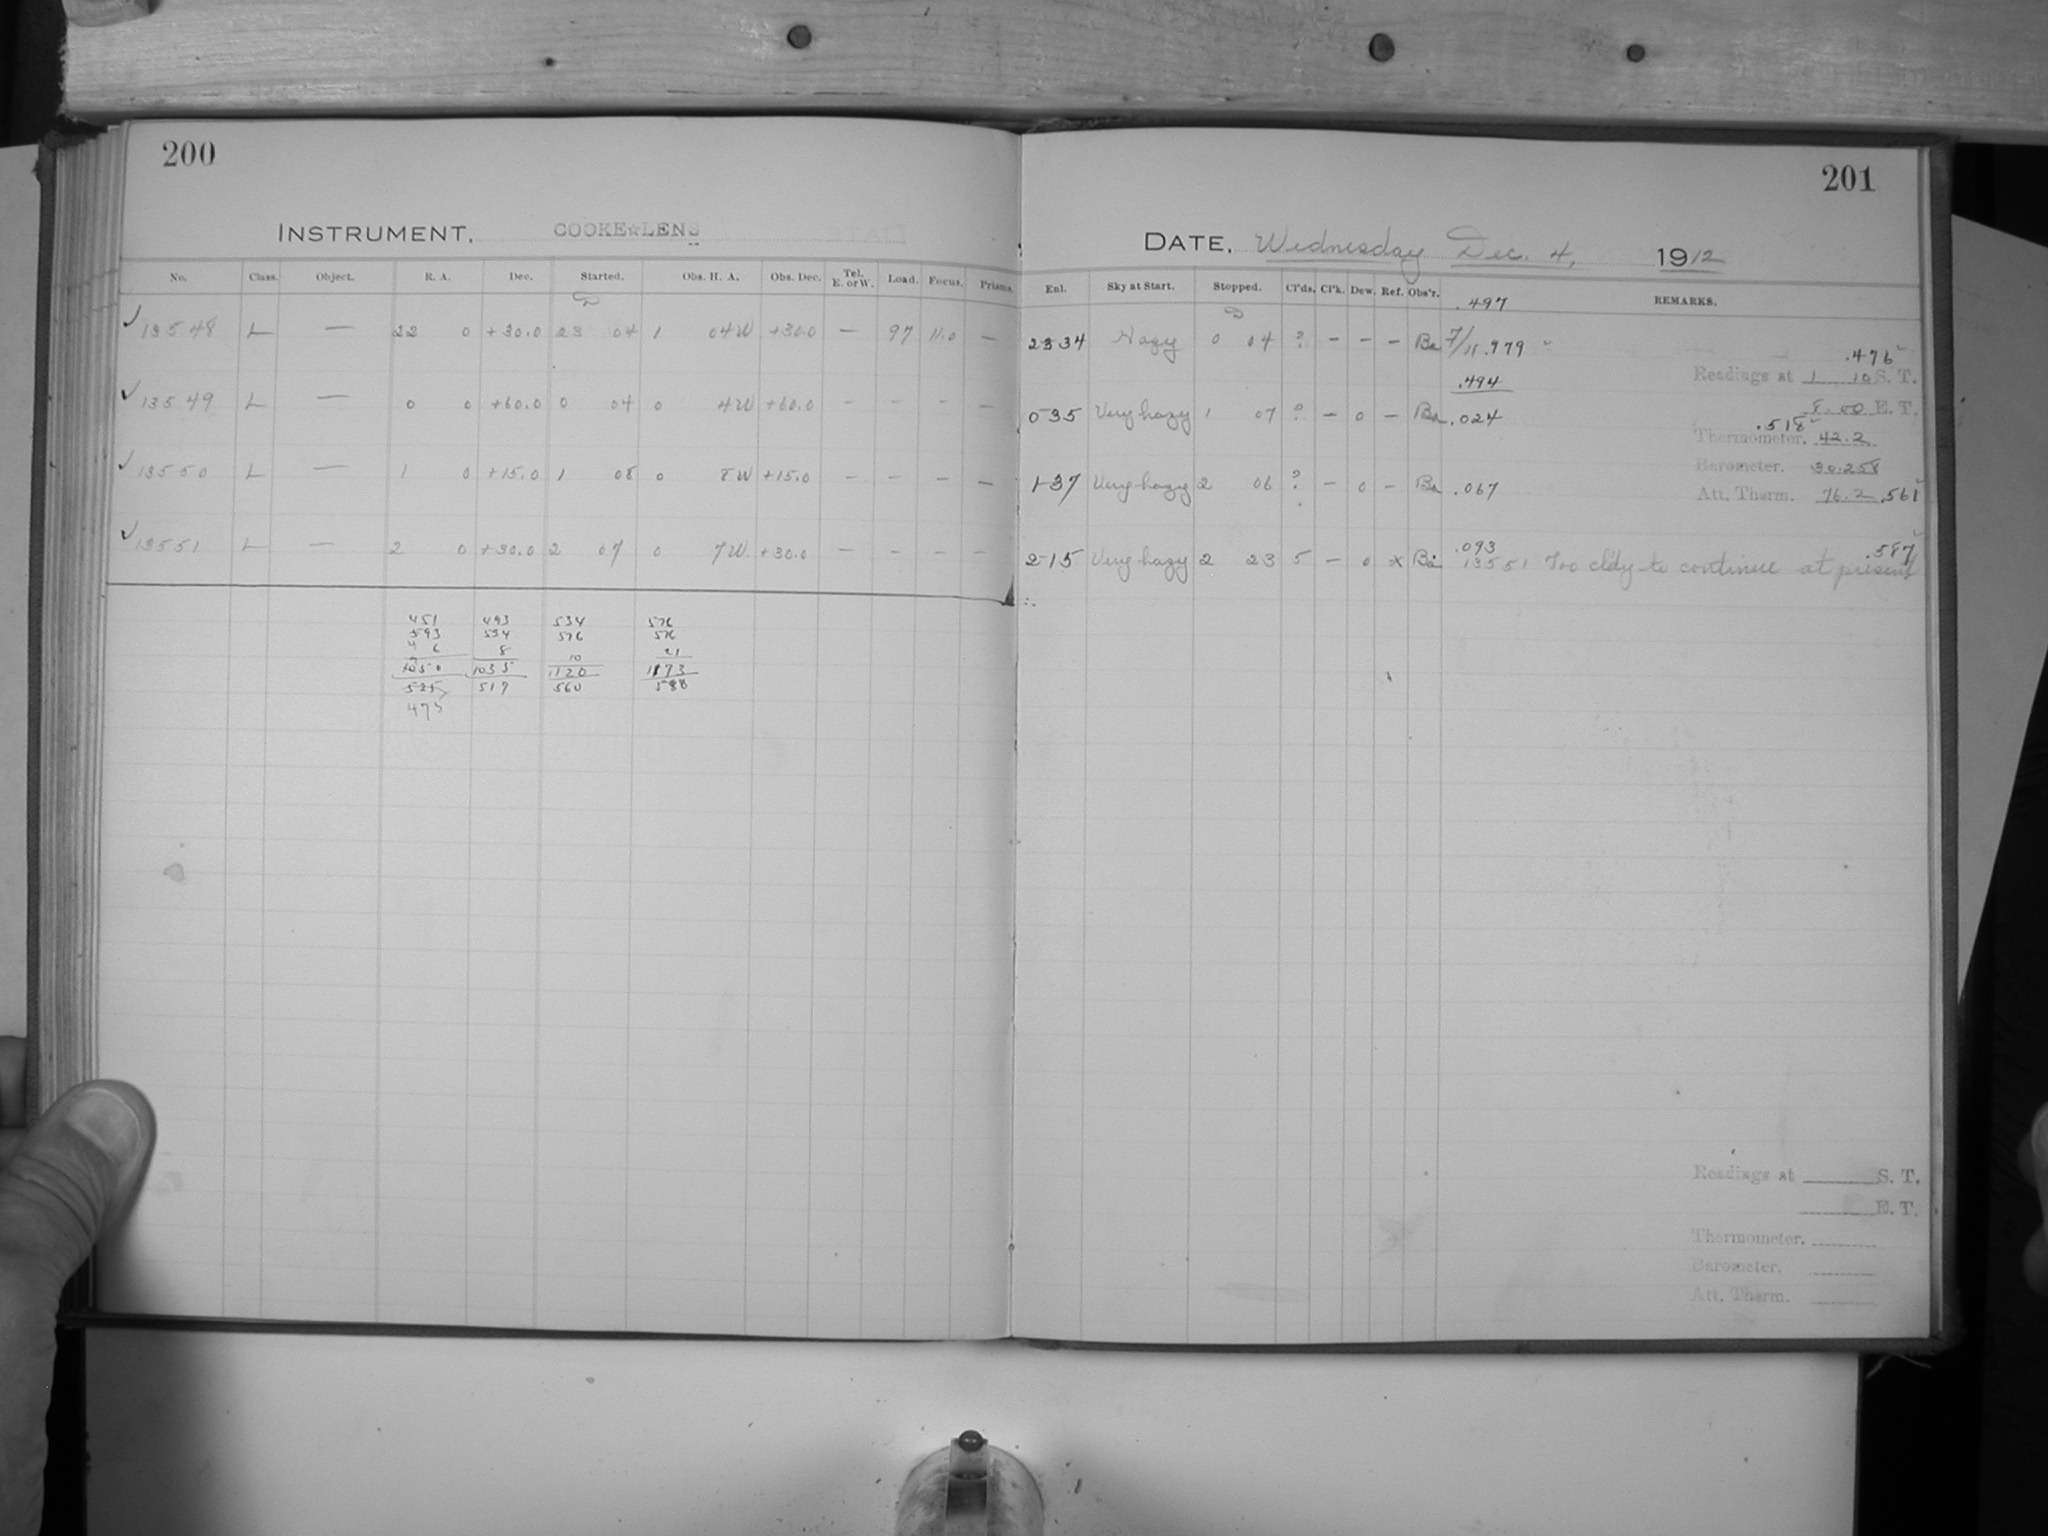 200
INSTRUMENT, COOKE☆LENS
No. Class. Object. R. A. Dec. Started. Obs. H. A. Obs. Dec. Tel. E. or W. Load. Focus. Prisms.
✓ 13548 L — 22 0 +30.0 23 04 1 04W +30.0 — 97 11.0 —
✓ 13549 L — 0 0 +60.0 0 04 0 4W +60.0 — — — —
✓ 13550 L — 1 0 +15.0 1 08 0 8W +15.0 — — — —
✓ 13551 L — 2 0 +30.0 2 07 0 7W +30.0 — — — —
451 493 534 576
593 534 576 576
6 8 10 21
1050 1035 1120 1173
525 517 560 588
475
201
DATE, Wednesday Dec. 4, 1912
Enl. Sky at Start. Stopped. Cl'ds. Cl'k. Dew. Ref. Obs'r. REMARKS.
.497
2334 Hazy 0 04 ? — — — Ba 7/11.979
.476
Readings at 1 10 S. T.
.494
8.00 E. T.
035 Very hazy 1 07 ? — 0 — Ba .024
.518
Thermometer. 42.2
Barometer. 30.258
137 Very hazy 2 06 ? — 0 — Ba .067
Att. Therm. 76.2 .561
.093 .587
215 Very hazy 2 23 5 — 0 x Ba 13551 Too cl'dy to continue at present
Readings at S. T.
E. T.
Thermometer.
Barometer.
Att. Therm.